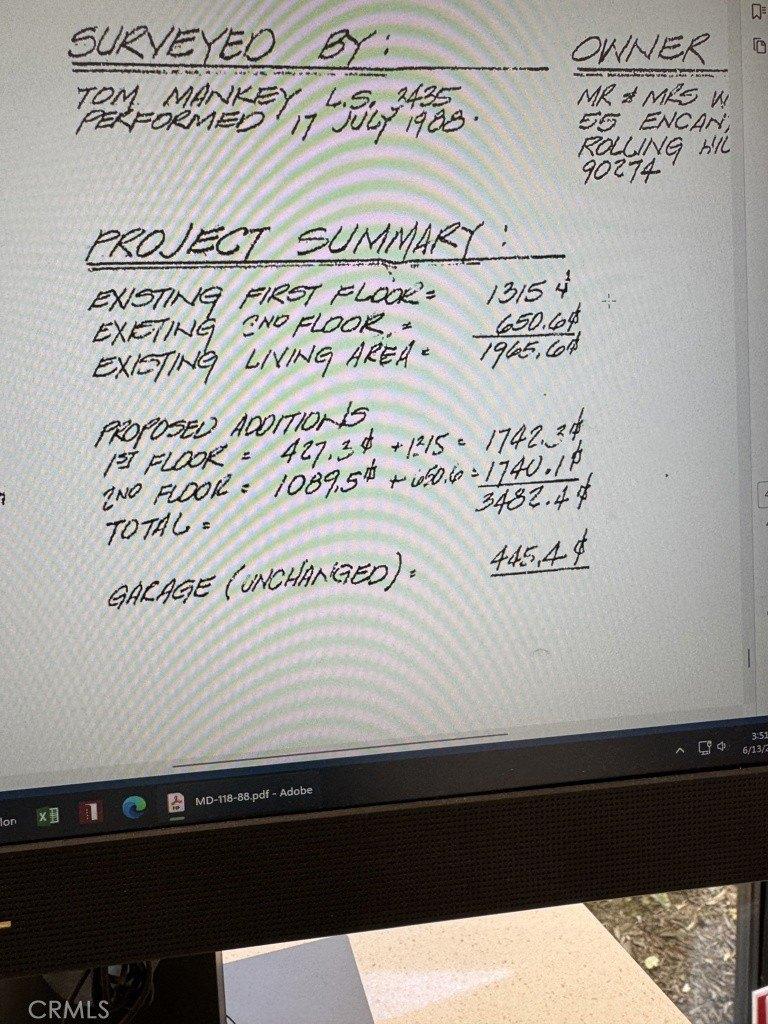 SURVEYED BY:
TOM MANKEY L.S. 2435
PERFORMED 17 JULY 1988.
OWNER
MR & MRS W
55 ENCAN
ROLLING HIL
90274
PROJECT SUMMARY:
EXISTING FIRST FLOOR = 1315 ⏍
EXISTING 2ND FLOOR = 650.6⏍
EXISTING LIVING AREA = 1965.6⏍
PROPOSED ADDITIONS
1ST FLOOR = 427.3⏍ + 1315 = 1742.3⏍
2ND FLOOR = 1089.5⏍ + 650.6 = 1740.1⏍
TOTAL = 3482.4⏍
GARAGE (UNCHANGED) = 445.4⏍
3:51
6/13/2
lon
MD-118-88.pdf - Adobe
CRMLS